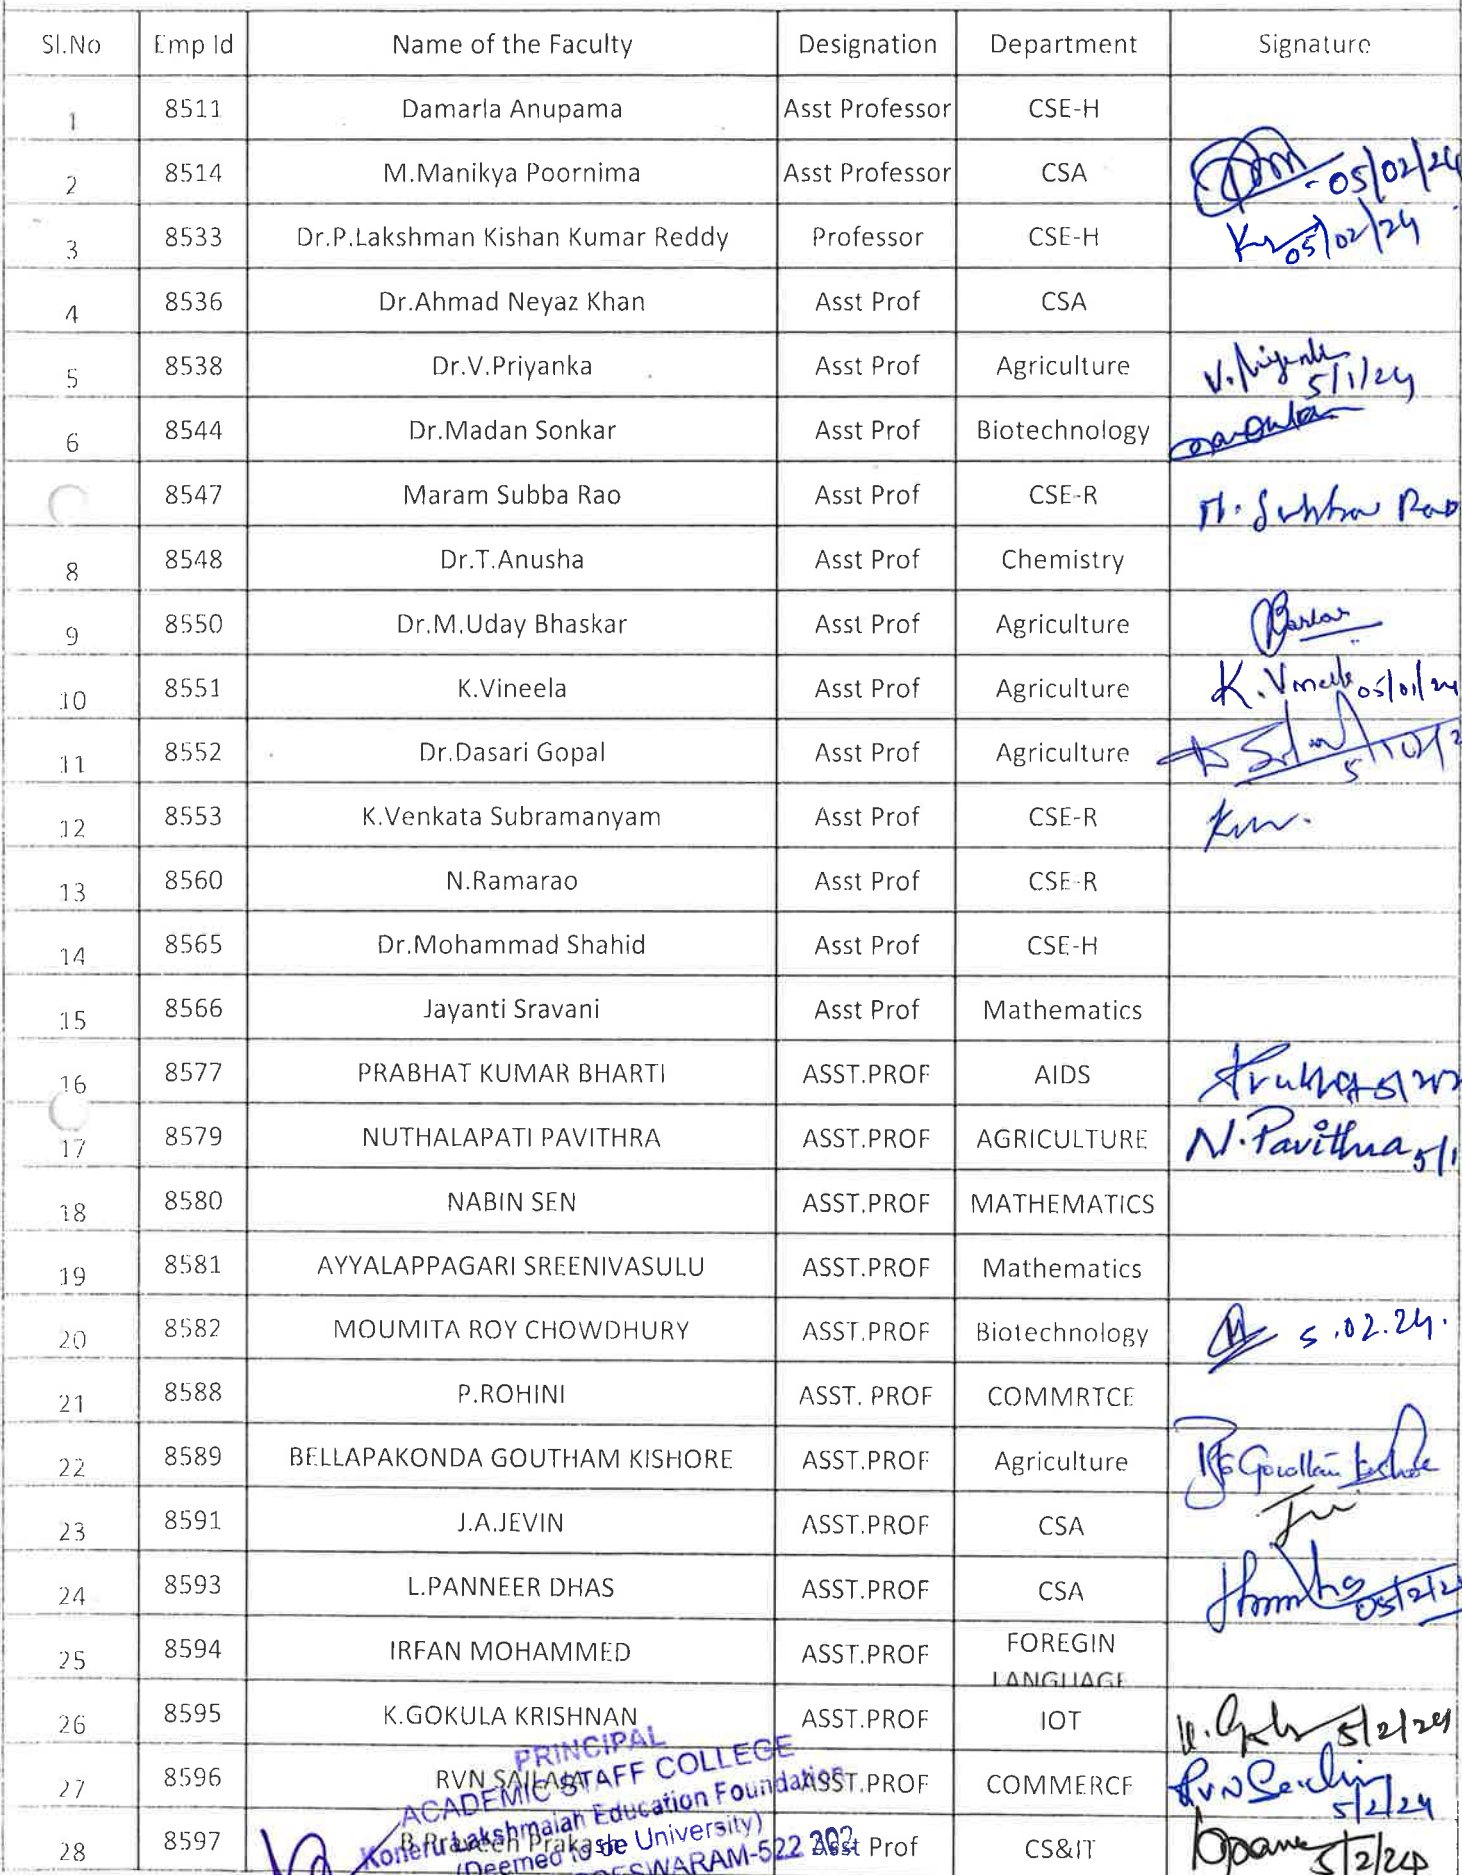 Sl.No Emp Id Name of the Faculty Designation Department Signature
1 8511 Damarla Anupama Asst Professor CSE-H
2 8514 M.Manikya Poornima Asst Professor CSA 05/02/24
3 8533 Dr.P.Lakshman Kishan Kumar Reddy Professor CSE-H 05/02/24
4 8536 Dr.Ahmad Neyaz Khan Asst Prof CSA
5 8538 Dr.V.Priyanka Asst Prof Agriculture V. Priyanka 5/1/24
6 8544 Dr.Madan Sonkar Asst Prof Biotechnology
8547 Maram Subba Rao Asst Prof CSE-R M. Subba Rao
8 8548 Dr.T.Anusha Asst Prof Chemistry
9 8550 Dr.M.Uday Bhaskar Asst Prof Agriculture
10 8551 K.Vineela Asst Prof Agriculture K. Vineela 05/01/24
11 8552 Dr.Dasari Gopal Asst Prof Agriculture
12 8553 K.Venkata Subramanyam Asst Prof CSE-R
13 8560 N.Ramarao Asst Prof CSE-R
14 8565 Dr.Mohammad Shahid Asst Prof CSE-H
15 8566 Jayanti Sravani Asst Prof Mathematics
16 8577 PRABHAT KUMAR BHARTI ASST.PROF AIDS
17 8579 NUTHALAPATI PAVITHRA ASST.PROF AGRICULTURE N. Pavithra 5/1
18 8580 NABIN SEN ASST.PROF MATHEMATICS
19 8581 AYYALAPPAGARI SREENIVASULU ASST.PROF Mathematics
20 8582 MOUMITA ROY CHOWDHURY ASST.PROF Biotechnology 5.02.24.
21 8588 P.ROHINI ASST. PROF COMMRTCE
22 8589 BELLAPAKONDA GOUTHAM KISHORE ASST.PROF Agriculture Goutham Kishore
23 8591 J.A.JEVIN ASST.PROF CSA
24 8593 L.PANNEER DHAS ASST.PROF CSA 05/2/2
25 8594 IRFAN MOHAMMED ASST.PROF FOREGIN
LANGUAGE
26 8595 K.GOKULA KRISHNAN ASST.PROF IOT 5/2/24
PRINCIPAL
27 8596 RVN SAILAJA ASST.PROF COMMERCE 5/2/24
ACADEMIC STAFF COLLEGE
Koneru Lakshmaiah Education Foundation
28 8597 B Praveen Prakash Asst Prof CS&IT 5/2/24
(Deemed to be University)
ESWARAM-522 302